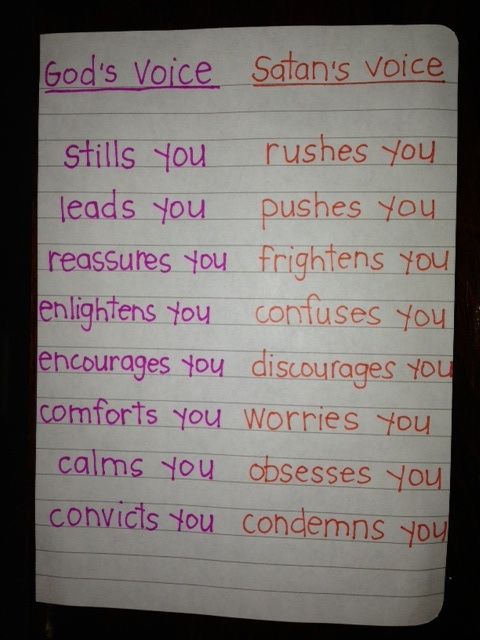 God's Voice Satan's Voice
stills you rushes you
leads you pushes you
reassures you frightens you
enlightens you confuses you
encourages you discourages you
comforts you worries you
calms you obsesses you
convicts you condemns you